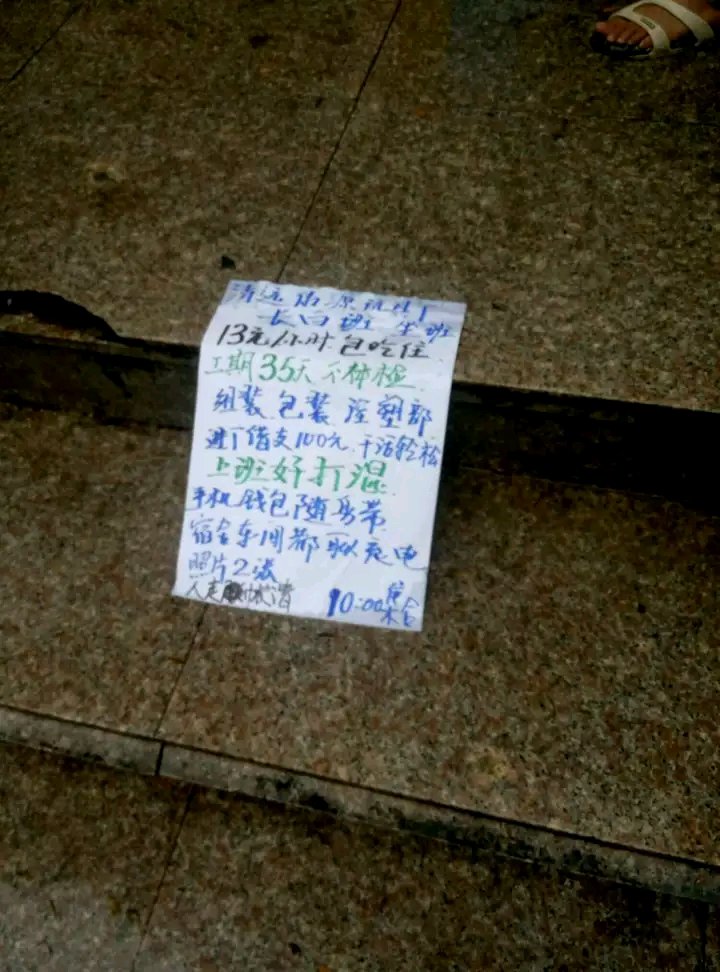 清远
长白班 坐班
13元/小时 包吃住
工期35天 不体检
组装 包装 注塑部
进厂借支100元 干活轻松
上班好打混
手机钱包随身带
宿舍车间都 充电
照片2张
人走
10:00 集合